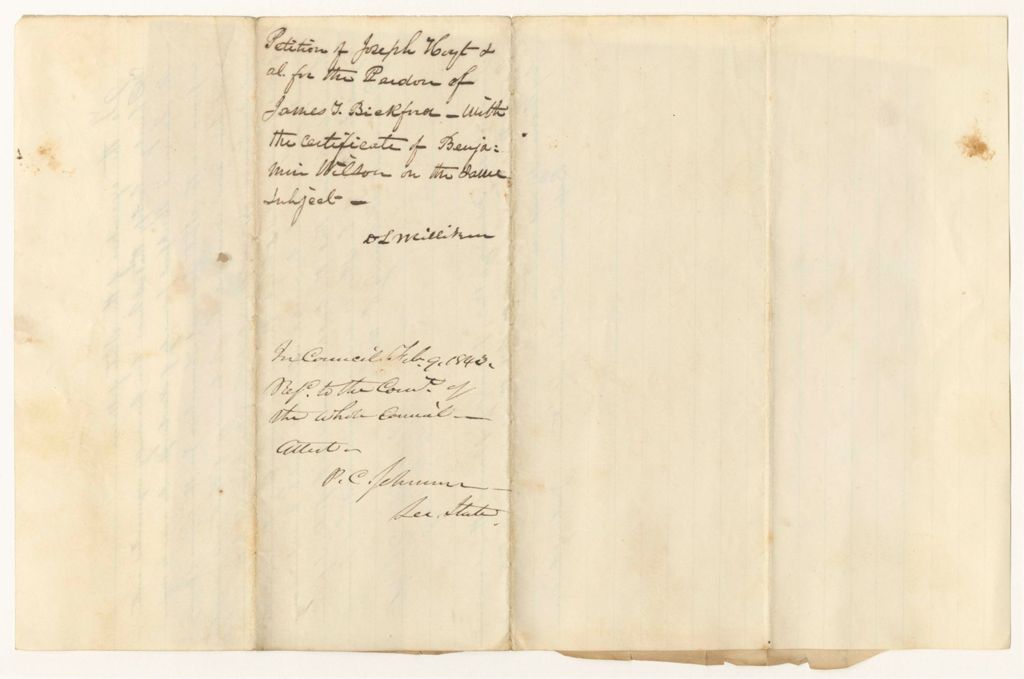 Petition of Joseph Hoyt &
al. for the Pardon of
James T. Bickford – with
the certificate of Benja=
min Wilson on the same
subject –
D L Milliken
In Council Feb. 9, 1843.
Refd. to the Comt. of
the whole Council –
Attest –
P. C. Johnson
Sec. State.